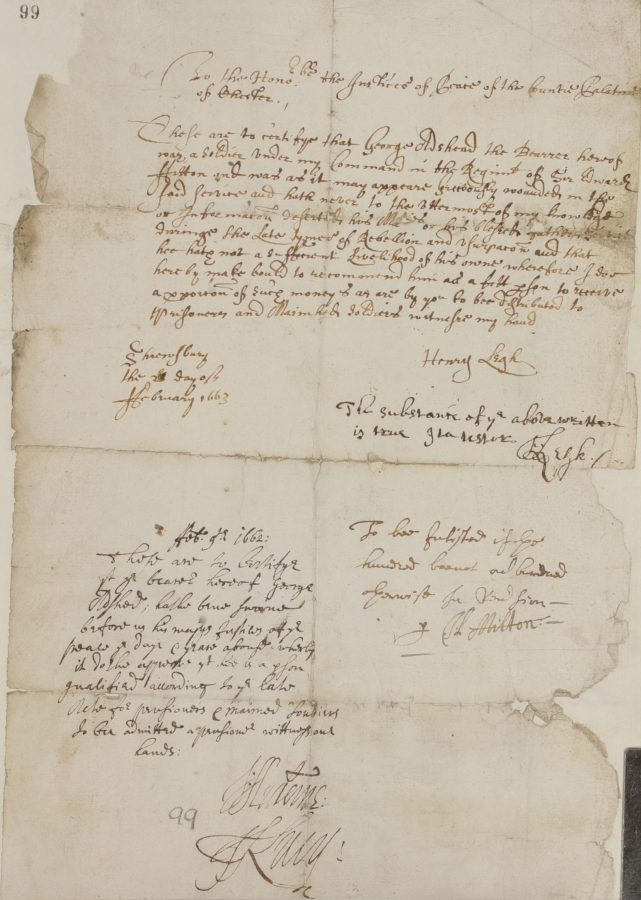 99
To the Hono:ble the Justices of Peace of the Countie Palatine
of Chester.,
These are to certifye that George Oldshead the Bearrer hereof
was a Soldier under my Command in the Regimt of Sir Edward
ffitton and was as it may appeare greivously wounded in the
said Service and hath never to the uttermost of my knowledge
or Informacon deserted his Maties or his blessed ffathers
duringe the Late tymes of Rebellion and Usurpacon and that
hee hath not a sufficient Livelihood of his owne wherefore I doe
hereby make bould to recommend him as a fitt pson to receive
a pporcon of such moneys as are by you to bee distributed to
Prisoners and Maimhed Soldiers witnesse my hand
Henry Legh
Shrewsbury
the day of
ffebruary 1663
The substance of ye above written
is true I attestor
Legh
feb: 9t 1662:
These are to Certifye
yt ye bearer hereof George
Oldshed, hathe bine sworne
before us his maties Justices of ye
peace ye day & yeare above wherby
it dothe appeare yt hee is a pson
qualified according to ye late
Acte for pensioners & maimed Souldiers
to bee admitted a pensioner wittnes our
hands:
To bee
hundred
hundred
otherwise
Milton
99